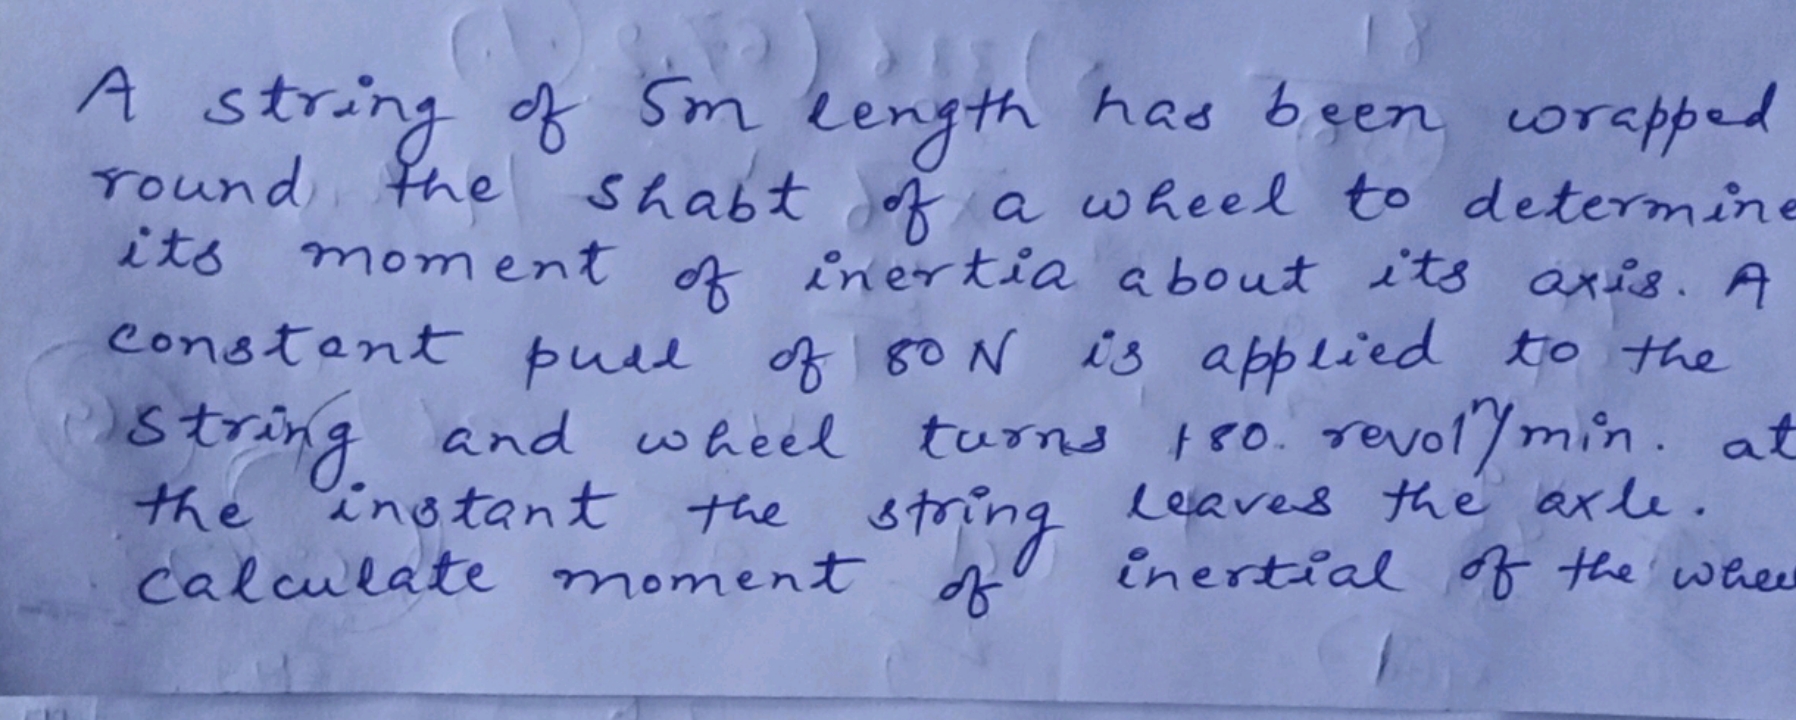 A string of 5m length has been wrapped
round the shaft of a wheel to determine
its moment of inertia about its axis. A
constant pull of 80 N is applied to the
string and wheel turns 180. revolⁿ/min. at
the instant the string leaves the axle.
calculate moment of inertial of the whee